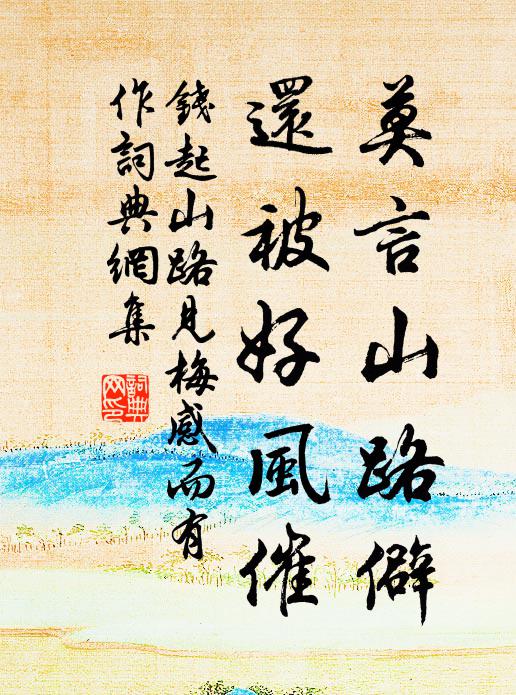 莫言山路僻
還被好風催
錢起山路見梅感而有
作詞典網集
詞典
网印